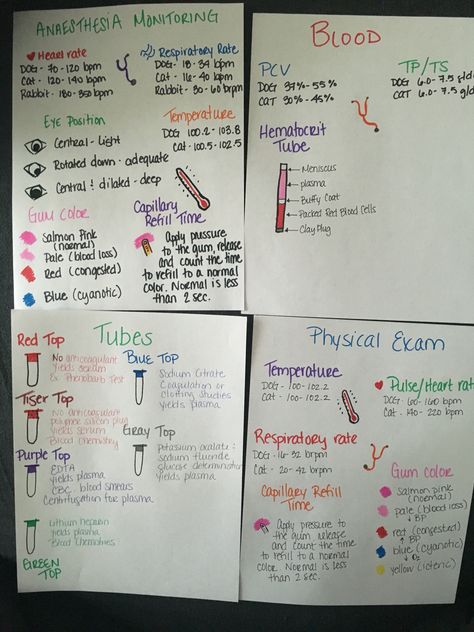 ANAESTHESIA MONITORING
Heart rate
DOG - 70-120 bpm
Cat - 120-140 bpm
Rabbit - 180-350 bpm
Respiratory Rate
DOG - 18-34 bpm
Cat - 16-40 bpm
Rabbit - 30-60 brpm
EYE POSITION
Central - light
Rotated down - adequate
Central & dilated - deep
Temperature
DOG 100.2 - 103.8
Cat - 100.5 - 102.5
GUM COLOR
Salmon Pink
(normal)
Pale (blood loss)
Red (congested)
Blue (cyanotic)
Capillary
Refill Time
Apply pressure
to the gum, release
and count the time
to refill to a normal
color. Normal is less
than 2 sec.
BLOOD
PCV
DOG 37%-55%
CAT 30%-45%
TP/TS
DOG 6.0-7.5 g/dl
CAT 6.0-7.5 g/dl
Hematocrit
Tube
Meniscus
plasma
Buffy Coat
Packed Red Blood Cells
Clay Plug
Tubes
Red Top
No anticoagulant
Yields serum
Ex Phenobarb Test
Tiger Top
No anticoagulant
polymer silicon plug
Yields serum
Blood Chemistry
Purple Top
EDTA
Yields plasma
CBC, blood smears
Centrifugation for plasma
Lithium heparin
Yields plasma
Blood Chemistries
GREEN
TOP
BLUE TOP
Sodium Citrate
Coagulation or
clotting studies
Yields plasma
Gray Top
Potassium oxalate :
sodium fluoride
glucose determination
Yields plasma
Physical Exam
Temperature
DOG - 100 - 102.2
Cat - 100 - 102.2
Pulse/Heart rate
DOG - 60 - 160 bpm
Cat - 140 - 220 bpm
Respiratory rate
DOG - 16-32 brpm
Cat - 20-42 brpm
Capillary Refill
Time
Apply pressure to
the gum, release
and count the time
to refill to a normal
color. Normal is less
than 2 sec.
Gum color
Salmon pink
(normal)
pale (blood loss)
↓ BP
red (congested)
↑ BP
blue (cyanotic)
↓ O₂
yellow (icteric)